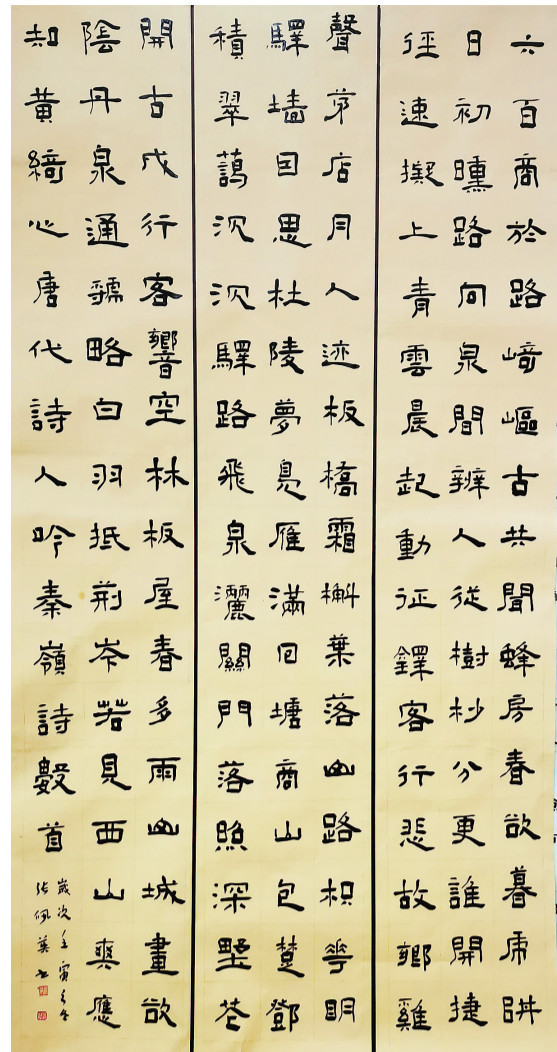 六百商於路崎嶇古共聞蜂房春欲暮虎阱
日初曛路向泉間辨人從樹杪分更誰開捷
徑速擬上青雲晨起動征鐸客行悲故鄉雞
聲茅店月人迹板橋霜槲葉落山路枳花明
驛墻因思杜陵夢鳧雁滿回塘商山包楚鄧
積翠藹沉沉驛路飛泉灑關門落照深野花
開古戍行客響空林板屋春多雨山城晝欲
陰丹泉通虢略白羽抵荊岑若見西山爽應
知黃綺心唐代詩人吟秦嶺詩數首
歲次壬寅
张佩英书